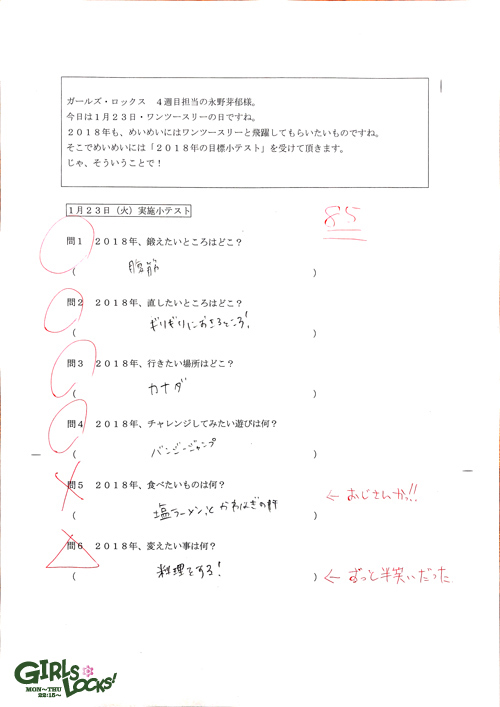 ガールズ・ロックス　４週目担当の永野芽郁様。
今日は１月２３日・ワンツースリーの日ですね。
２０１８年も、めいめいにはワンツースリーと飛躍してもらいたいものですね。
そこでめいめいには「２０１８年の目標小テスト」を受けて頂きます。
じゃ、そういうことで！
１月２３日（火）実施小テスト
85
問１　２０１８年、鍛えたいところはどこ？
（　腹筋　）
問２　２０１８年、直したいところはどこ？
（　ギリギリにおきるところ！　）
問３　２０１８年、行きたい場所はどこ？
（　カナダ　）
問４　２０１８年、チャレンジしてみたい遊びは何？
（　バンジージャンプ　）
問５　２０１８年、食べたいものは何？
（　塩ラーメンとかわはぎの肝　）← おじさんかっ!!
問６　２０１８年、変えたい事は何？
（　料理をする！　）← ずっと半笑いだった
GIRLS LOCKS!
MON~THU
22:15~